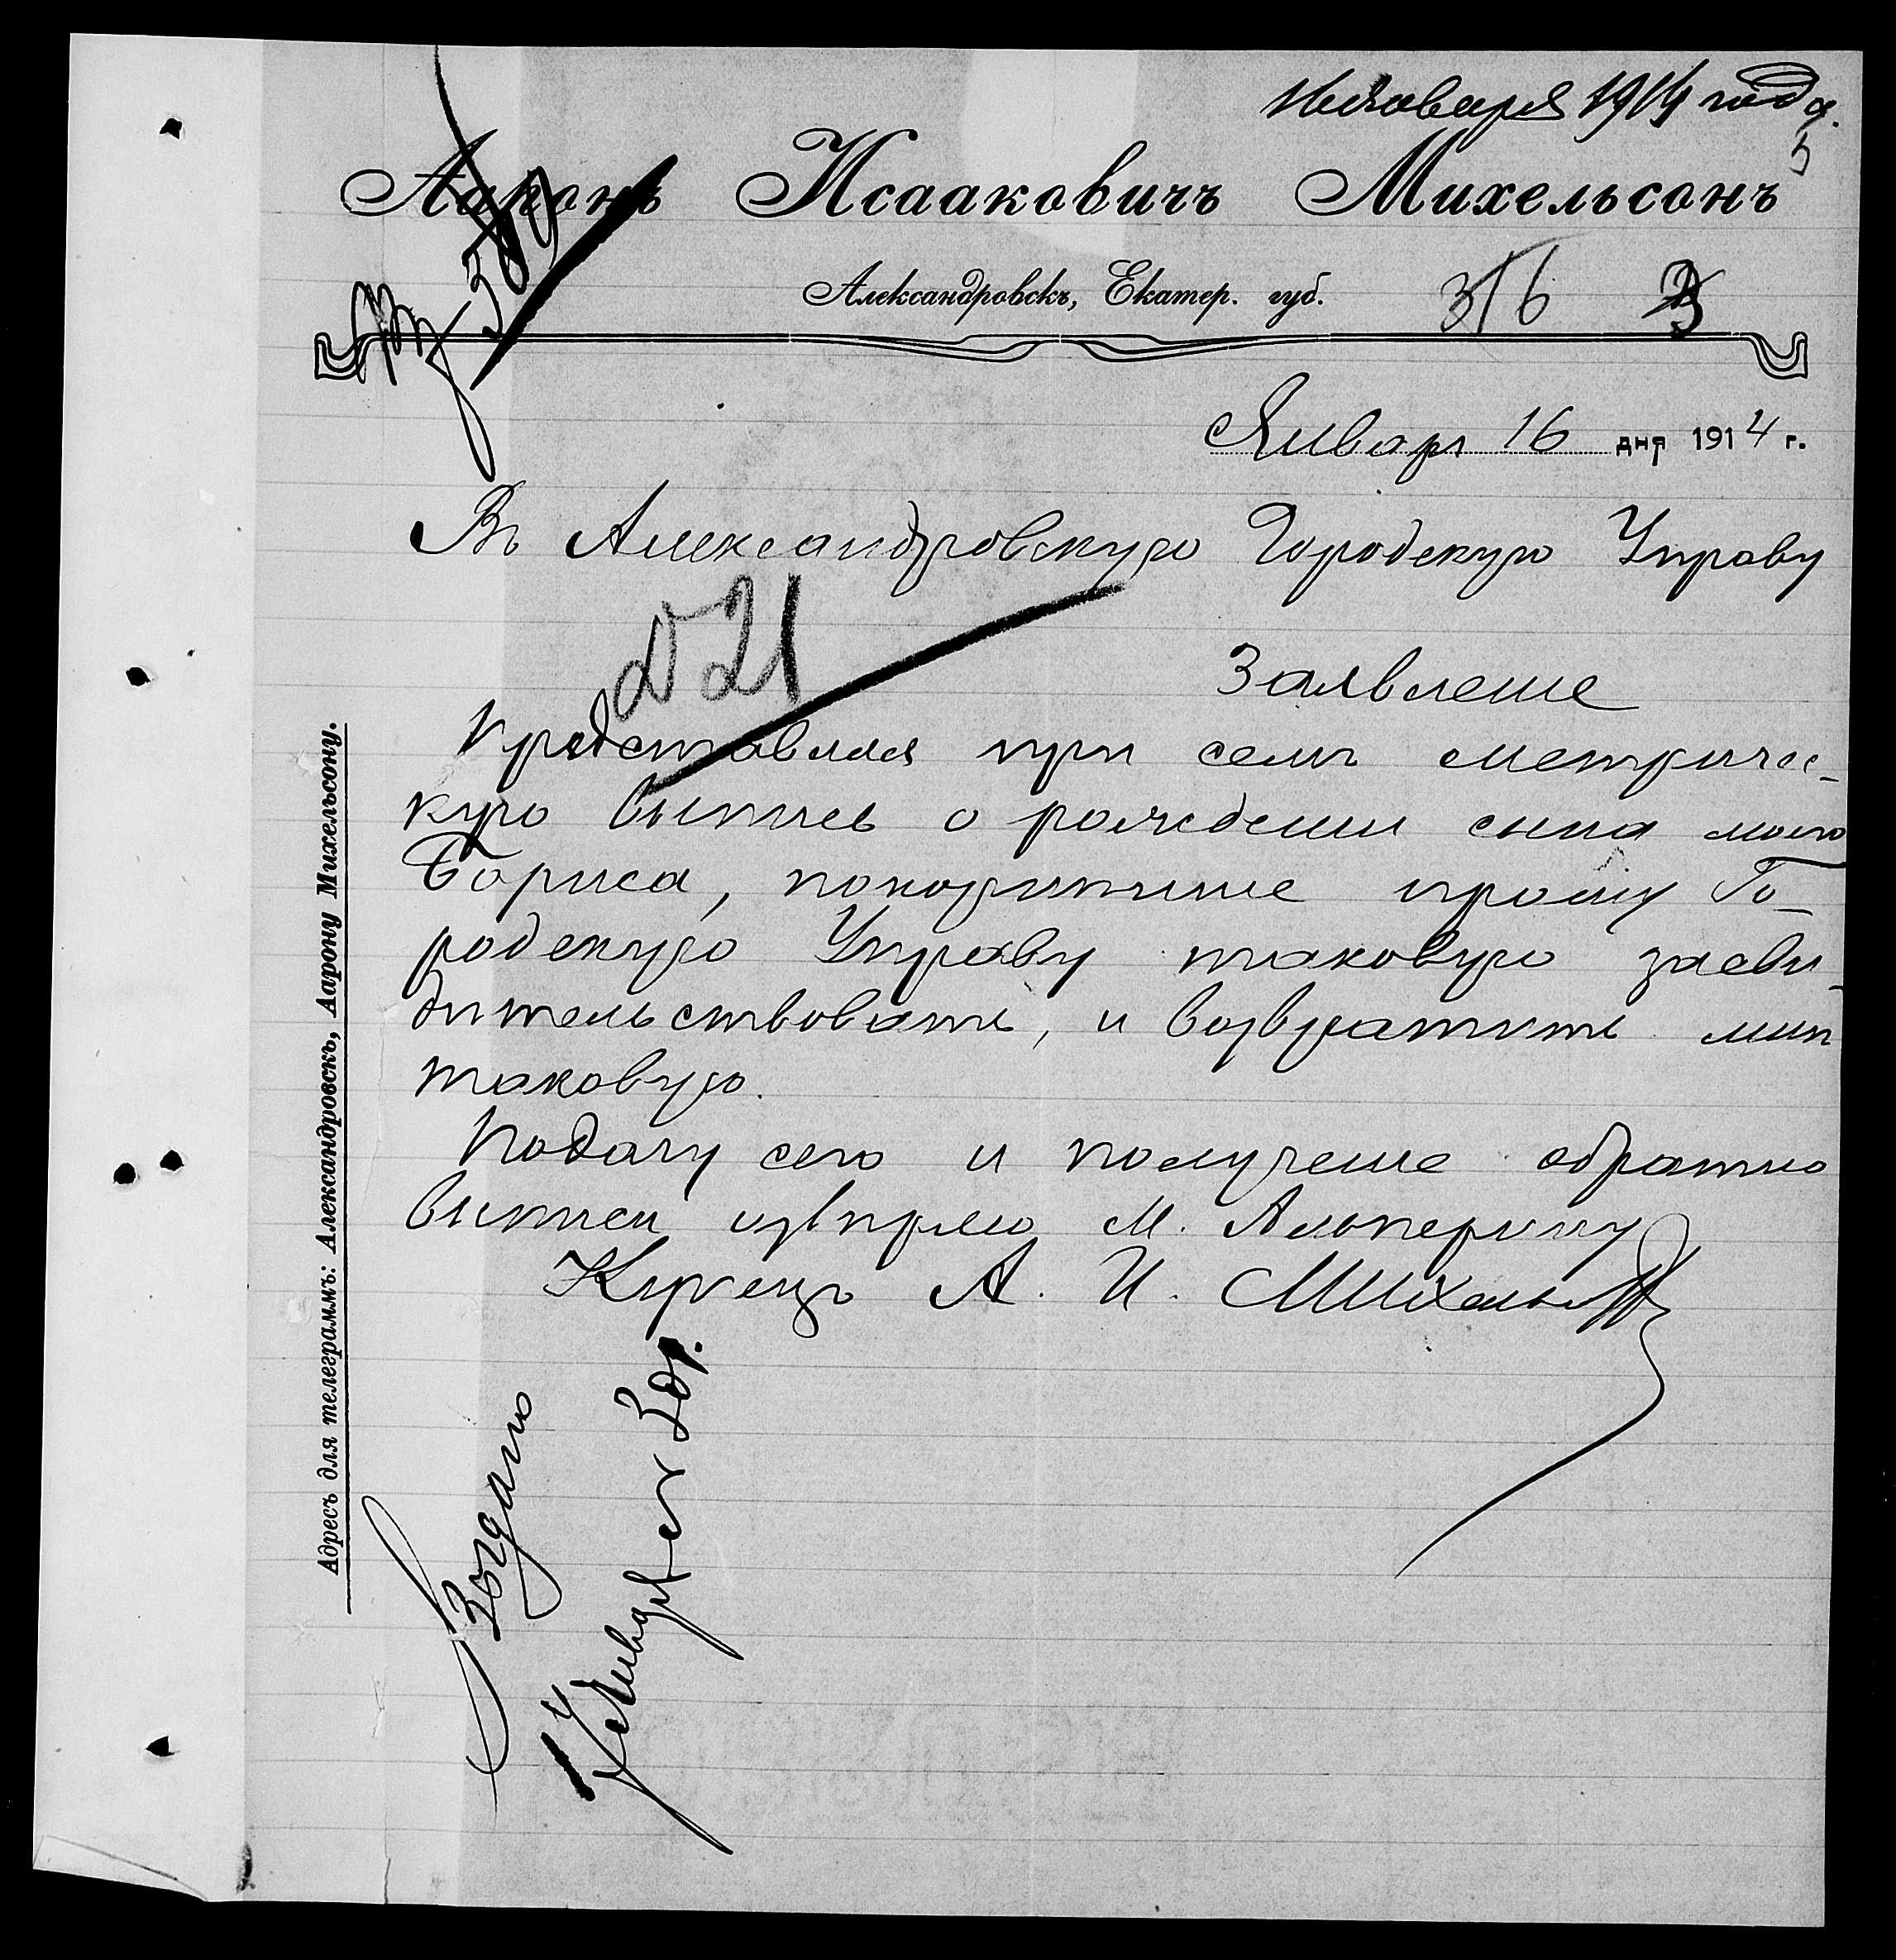 16 Января 1914 года.
5
Ааронъ Исааковичъ Михельсонъ
Александровскъ, Екатер. губ.
316 3
Января 16 дня 1914 г.
Въ Александровскую Городскую Управу
Д 21
Заявленіе
Представляя при семъ метричес-
кую выпись о рожденіи сына моего
Бориса, покорнѣйше прошу Го-
родскую Управу таковую засви-
дѣтельствовать, и возвратить мнѣ
таковую.
Подачу сего и полученіе обратно
выписи ввѣряю М. Альперину
Купецъ А. И. Михельсонъ
Адресъ для телеграммъ: Александровскъ, Аарону Михельсону.
17 Января